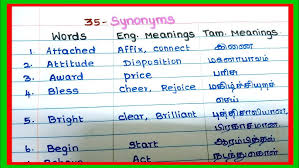 35- Synonyms
Words Eng. Meanings Tam. Meanings
1. Attached Affix, connect இணை
2. Attitude Disposition மனப்பான்மை
3. Award price பரிசு
4. Bless Cheer, Rejoice மகிழ்ச்சியுறச்
செய்
5. Bright clear, Brilliant
6. Begin Start
Act